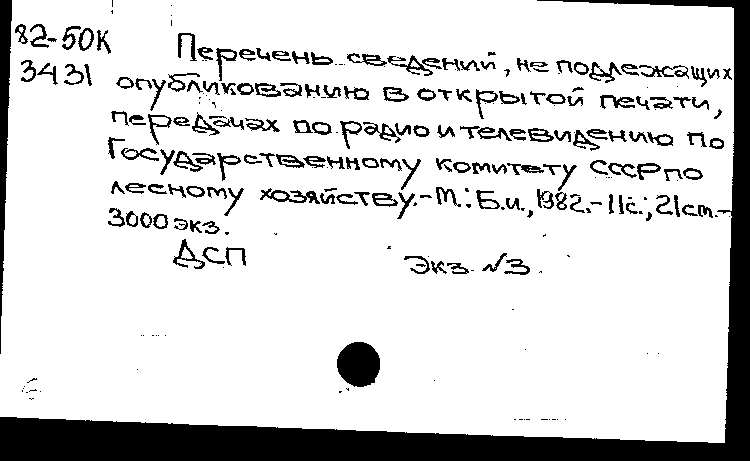 82-50К Перечень сведений, не подлежащих
3431 опубликованию в открытой печати,
передачах по радио и телевидению по
Государственному комитету СССР по
лесному хозяйству.-М.: Б.и., 1982.-11с.; 21см.-
3000 экз.
ДСП Экз. №3.